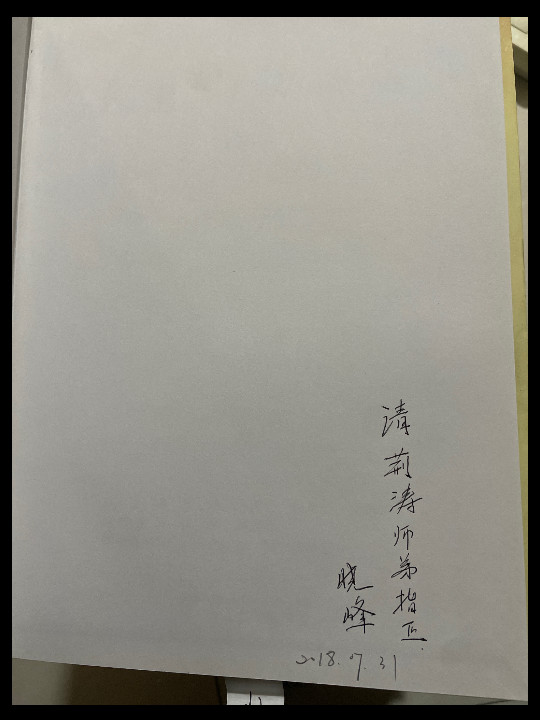 请荆涛师弟指正.
晓峰
2018.07.31